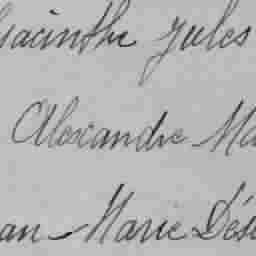 Hyacinthe Jules
Alexandre Ma
an Marie Dés